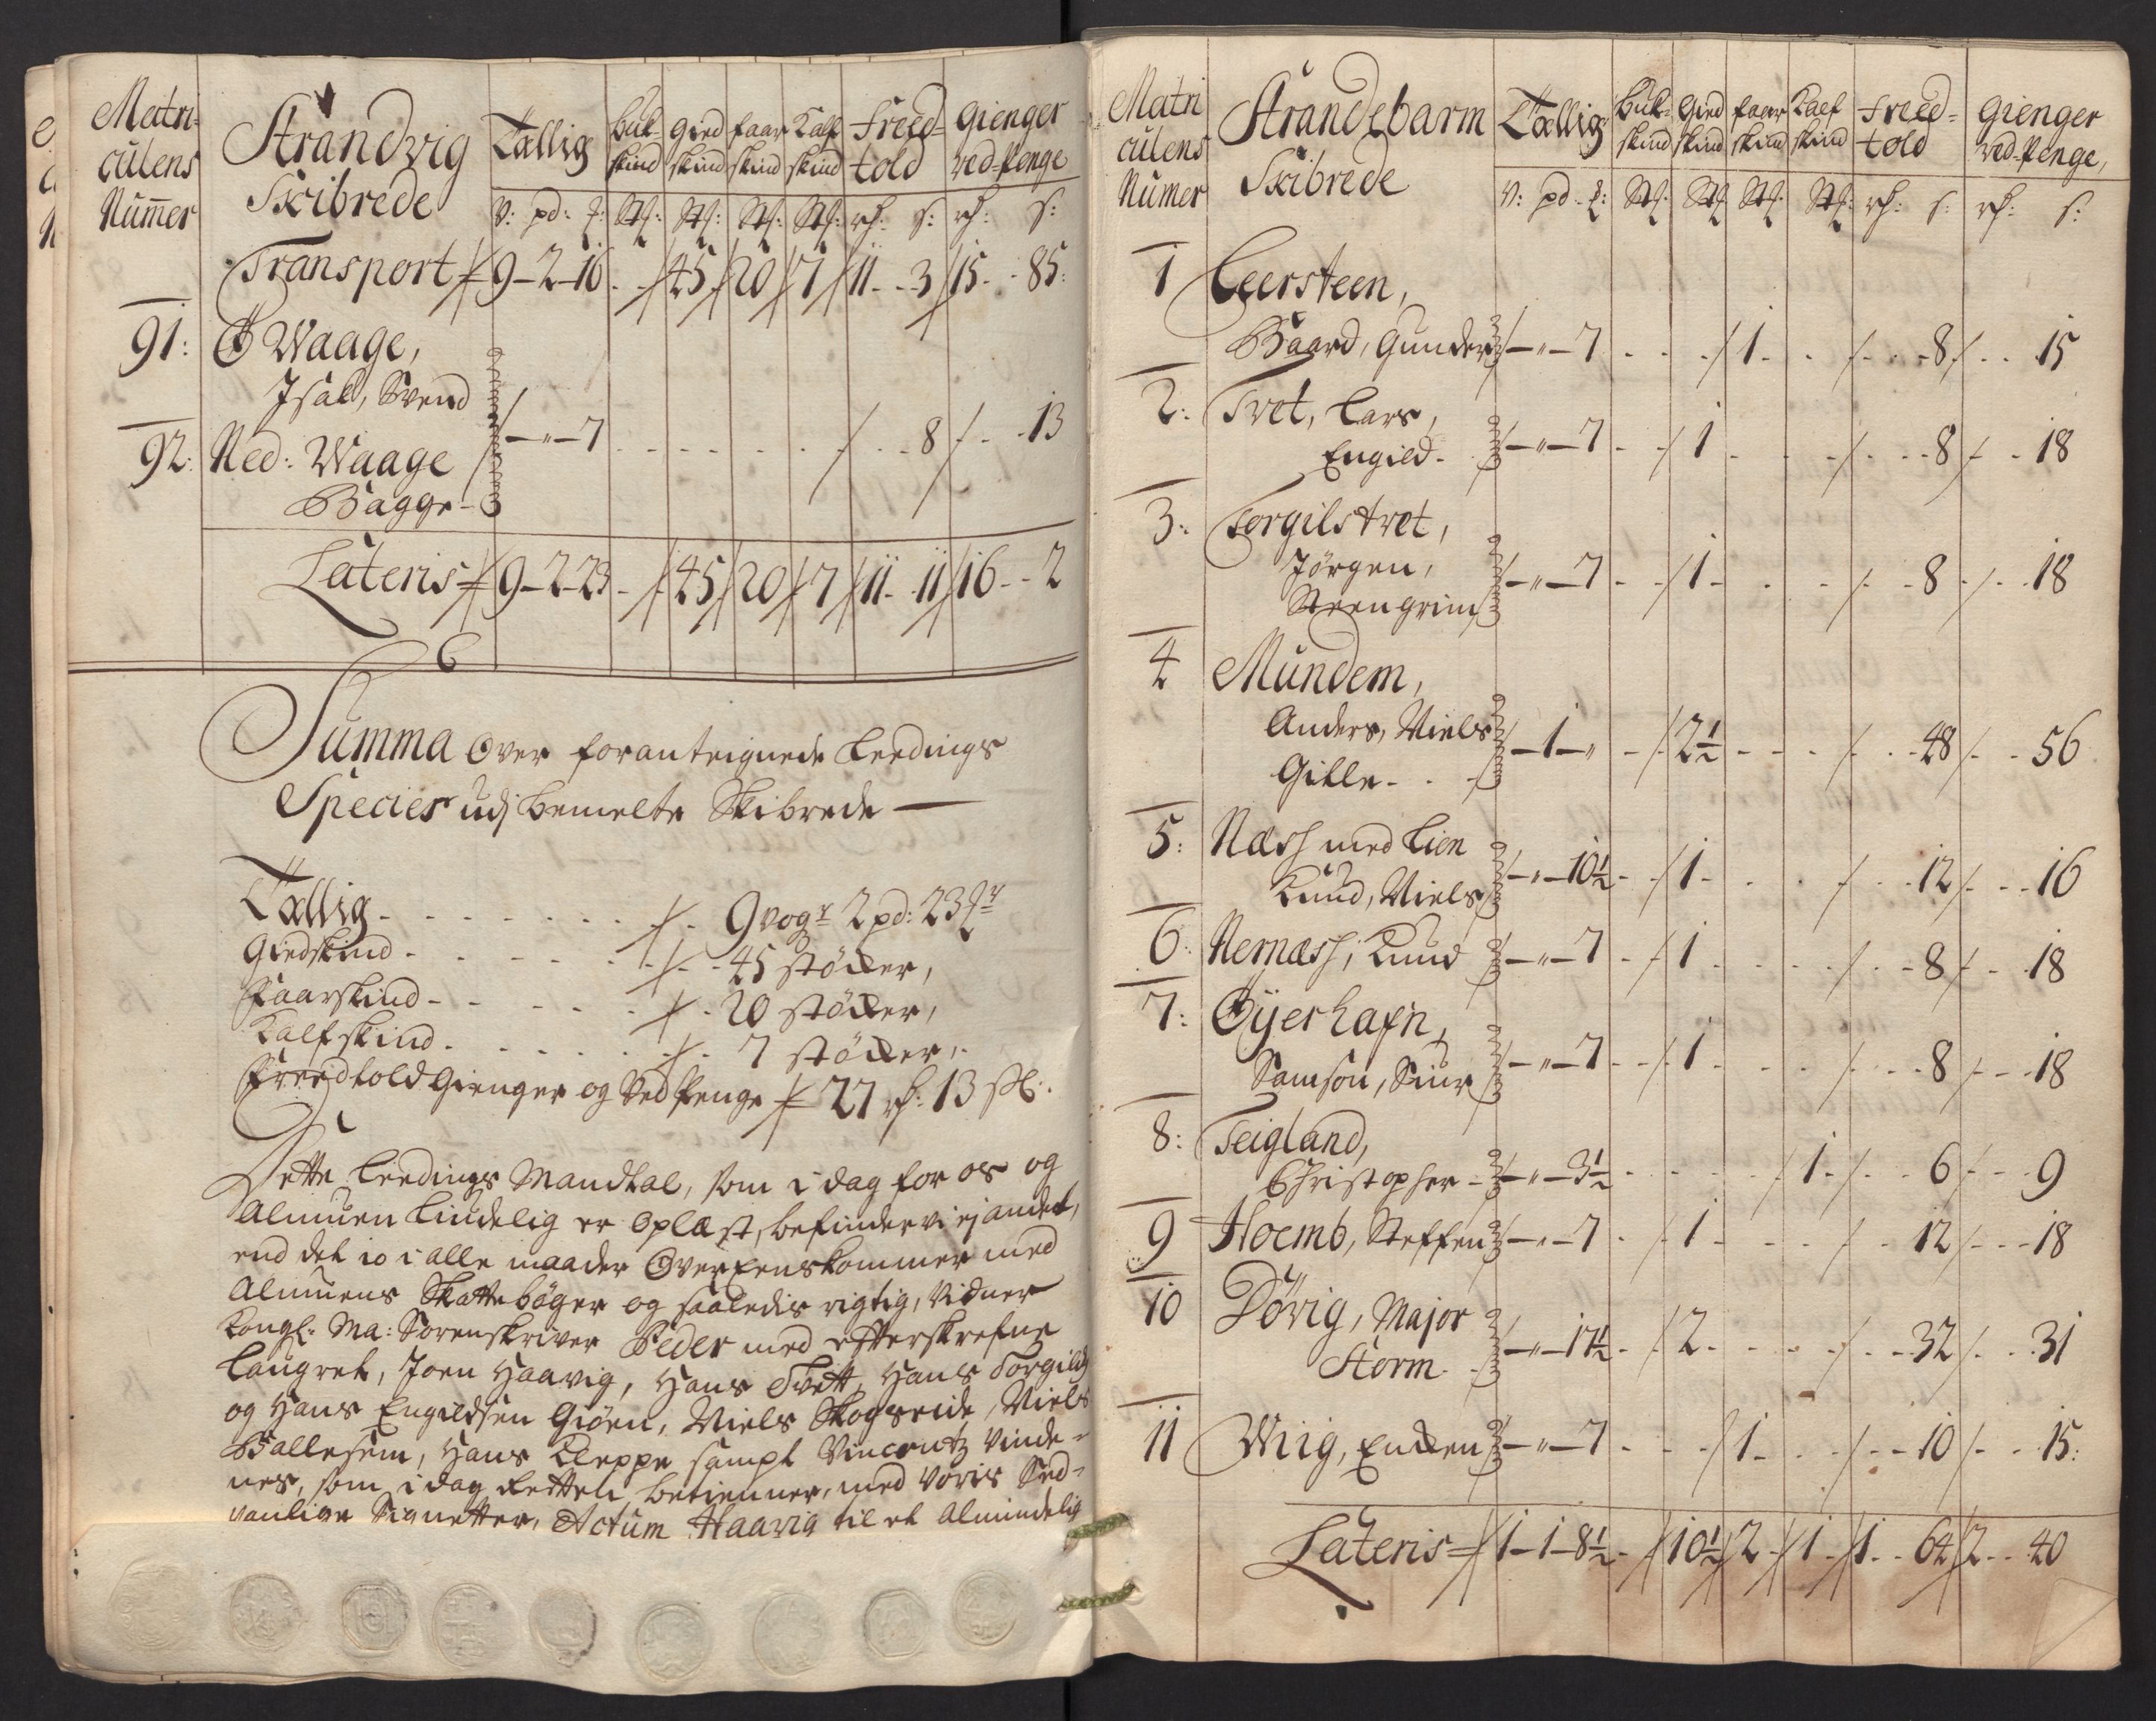 Matri-
culens
Nummer
Strandvig
Skibrede
Tallig
Buk
skind
Gied
skind
faar
skind
Kalf
skind
Freed-
told
Gienger
ved-Penge
V: pd: Stk: Stk: Stk: Stk: s: s:
Transport 9-2-16 45 20 7 11 - 3 15 - 85:
91: Ø Waage,
Isak, Svend
92: Ned: Waage
Bagge -
- " - 7 8 13
Lateris 9-2-23 45 20 7 11 - 11 16 - 2
Summa Over foranteignede Leedings
Species udj bemelte Skibrede —
Tallig - 9 vogr 2 pd: 23
Giedskind - 45 støcker,
Faarskind - 20 støcker,
Kalfskind - 7 støcker,
Freedtold Gienger og Ved Penge 27 13
Dette Leedings Mandtal, som i dag for os og
Almuen liudelig er Oplæst, befinder vi ej andet,
end det jo i alle maader Overeenskommer med
Almuens Skattebøger og saaledis rigtig, Vidner
Kongl: Ma: Sorenskriver Peder med efterskrefne
Laugret, Joen Haavig, Hans Tvett, Hans Torgilds
og Hans Engildsen Giøen, Niels Skogseide, Niels
Ballesem, Hans Kleppe sampt Vincentz Vinde-
nes, som i dag Retten betienner, med Voris Sed-
vanlige Signetter, Actum Haavig til et Almindelig
Matri
culens
Numer
Strandebarm
Skibrede
Tallig
Buk-
skind
Gied
skind
faar
skind
Kalf
skind
Freed-
told
Gienger
ved-Penge,
V: pd - Stk: Stk Stk: Stk: s: s:
1 Leersteen,
Baard, Gunder - " - 7 1 8 15
2: Tvet, Lars,
Engild - - " - 7 1 8 18
3: Torgilstvet,
Jørgen,
Steengrim - " - 7 1 8 18
4 Mundem,
Anders, Niels
Gille - - 1 - " 2½ 48 56
5: Næss med Lien
Knud, Niels - " - 10½ 1 12 16
6: Nernæss, Knud - " - 7 1 8 18
7: Øyerhafn,
Samson, Siur - " - 7 1 8 18
8: Teigland,
Christopher - - " - 3½ 1 6 9
9 Hoemb, Steffen - " - 7 1 12 18
10 Døvig, Major
Storm - " - 17½ 2 32 31
11 Wiig, Encken - " - 7 1 10 15:
Lateris 1-1-8½ 10½ 2 1 1 - 64 2 - 40